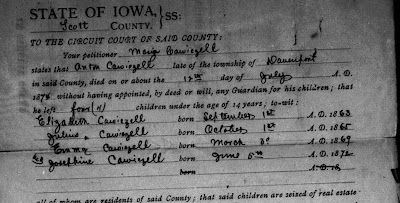 STATE OF IOWA, } SS:
Scott COUNTY.
TO THE CIRCUIT COURT OF SAID COUNTY:
Your petitioner Maria Cawiezell
states that Anton Cawiezell late of the township of Davenport
in said County, died on or about the 12th day of July A. D.
1876 without having appointed, by deed or will, any Guardian for his children; that
he left four (4) children under the age of 14 years, to-wit:
Elizabeth Cawiezell born September 1st A. D. 1863
Julius Cawiezell born October 1st A. D. 1865
Emma Cawiezell born March 3d A. D. 1867
Josephine Cawiezell born June 5th A. D. 1872
born A. D. 18
all of whom are residents of said County; that said children are seized of real estate